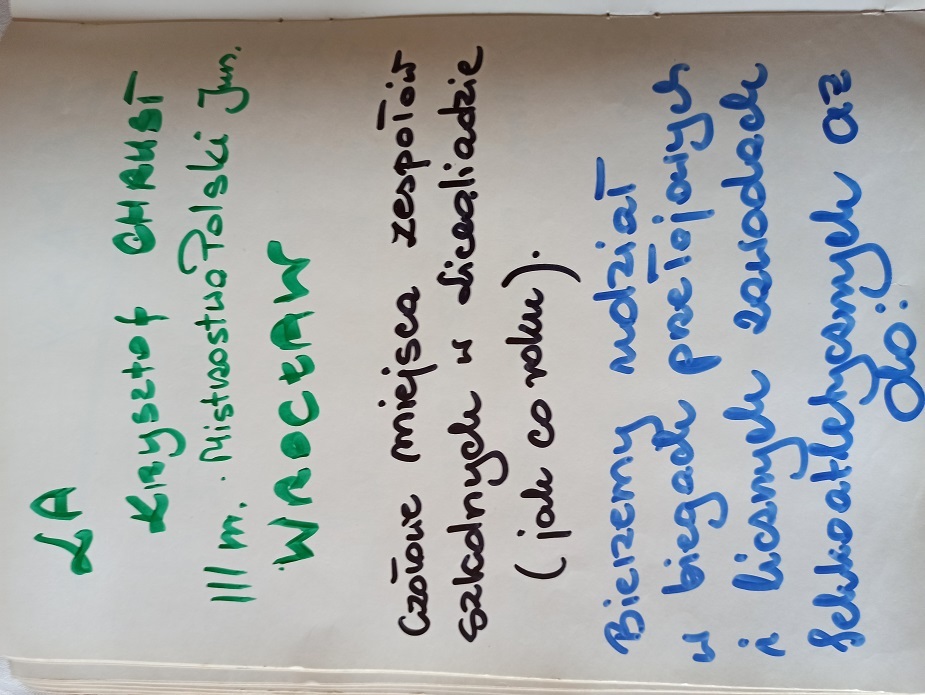 LA
Krzysztof CHRUŚT
III m. Mistrzostwa Polski Jun.
WROCŁAW
Czołowe miejsca zespołów
szkolnych w licealiadzie
(jak co roku).
Bierzemy udział
w biegach przełajowych
i licznych zawodach
lekkoatletycznych aż
do: